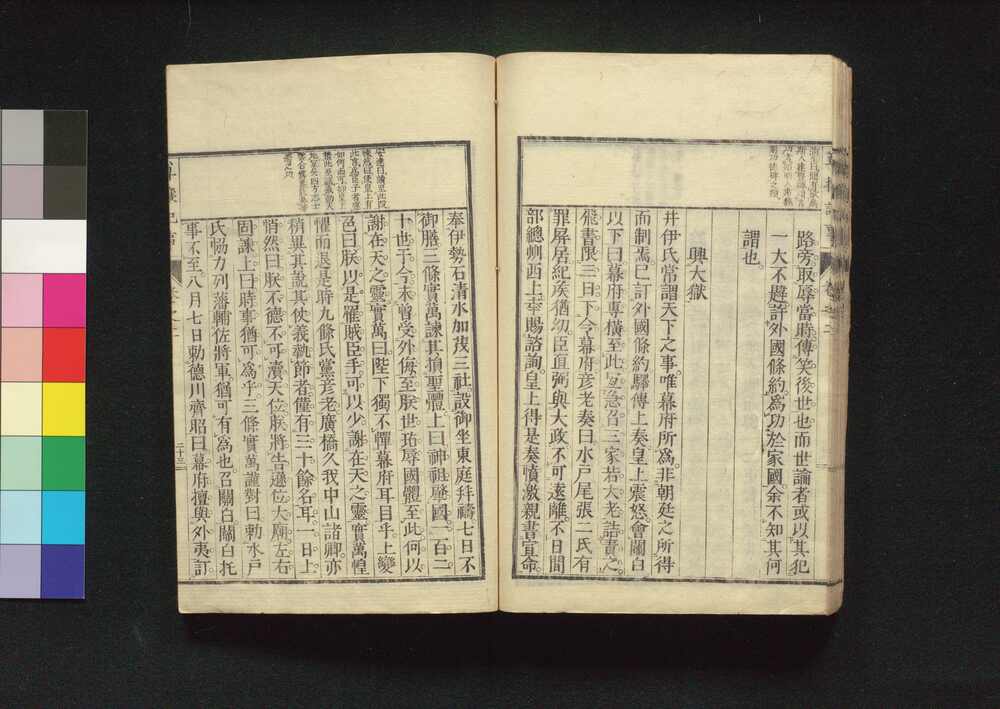 路旁取辱當時傳笑後世也而世論者或以其犯
一大不韙許外國條約爲功於家國余不知其何
謂也
興大獄
井伊氏常謂天下之事唯幕府所爲非朝廷之所得
而制焉已訂外國條約驛傳上奏皇上震怒會關白
以下曰幕府專橫至此急召三家若大老詰責之
飛書限三日下令幕府彦老奏曰水戶尾張二氏有
罪屏居紀侯猶幼臣直弼與大政不可遠離不日間
部總州西上辱賜諮詢皇上得是奏憤激親書宣命
奉伊勢石清水加茂三社設御坐東庭拜禱七日不
御膳三條實萬諫其損聖體上曰神祖肇國一百二
十世于今未曾受外侮至朕世玷辱國體至此何以
謝在天之靈實萬曰陛下獨不憚幕府耳目乎上變
色曰朕以是罹賊臣手可以少謝在天之靈實萬惶
懼而退是時九條氏黨彦老廣橋久我中山諸卿亦
稍異其說其仗義執節者僅有三十餘名耳一日上
悄然曰朕不德不可瀆天位朕將告遜位大廟左右
固諫上曰時事猶可爲乎三條實萬謹對曰勅水戶
氏協力列藩輔佐將軍猶可有爲也召關白關白托
事不至八月七日勅德川齊昭曰幕府擅與外夷訂
二十三